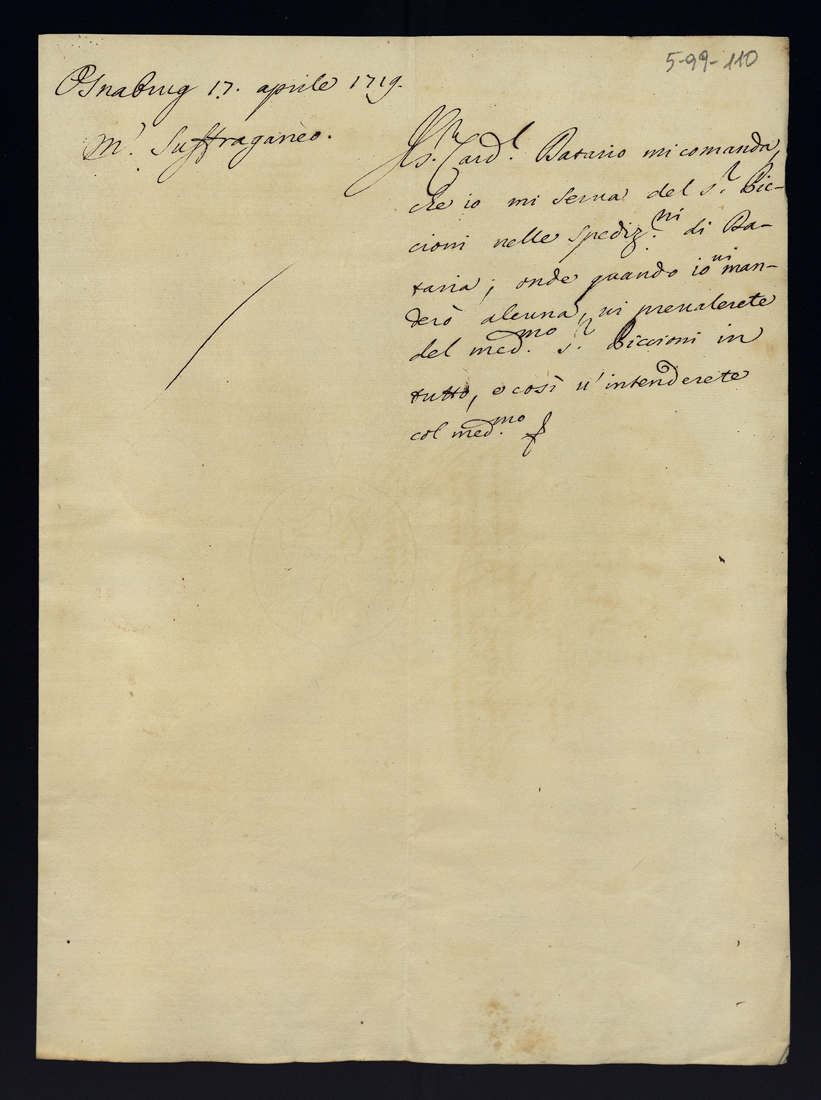 5-99-110
Osnabrug 17. aprile 1719.
M.r Suffraganeo.
Il S.r Card.l Datario mi comanda,
che io mi serua del S.r Bic-
cioni nelle spediz.ni di Da-
taria; onde quando io ui man-
derò alcuna, ui preualerete
del med.mo S.r Biccioni in
tutto, e così u'intenderete
col med.mo